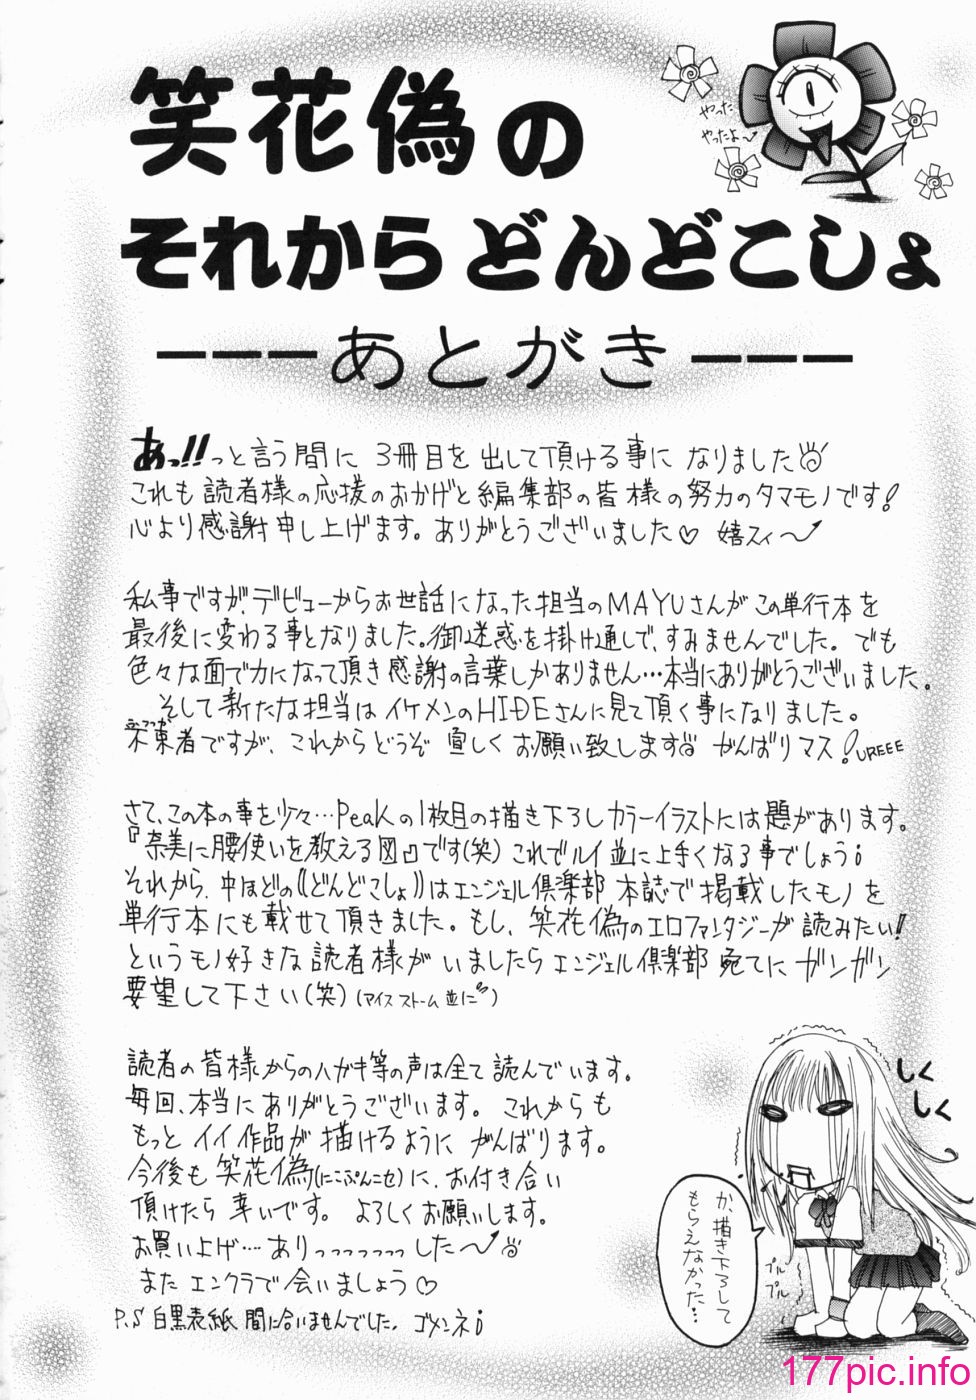 笑花偽の
それからどんどこしょ
あとがき
やった
やったよ〜
あっ!!っと言う間に 3冊目を出して頂ける事になりました
これも読者様の応援のおかげと編集部の皆様の努力のタマモノです!
心より感謝申し上げます。ありがとうございました♡ 嬉スィ〜
私事ですが、デビューからお世話になった担当のMAYUさんがこの単行本を
最後に変わる事となりました。御迷惑を掛け通しで、すみませんでした。でも
色々な面で力になって頂き感謝の言葉しかありません…本当にありがとうございました。
そして新たな担当はイケメンのHIDEさんに見て頂く事になりました。
不束者ですが、これからどうぞ宜しくお願い致します がんばりマス! UREEE
さて、この本の事を少々…Peakの1枚目の描き下ろしカラーイラストには題があります。
『奈美に腰使いを教える図』です(笑) これでルイ並に上手くなる事でしょう!
それから、中ほどの《どんどこしょ》はエンジェル倶楽部本誌で掲載したモノを
単行本にも載せて頂きました。もし、笑花偽のエロファンタジーが読みたい!!
というモノ好きな読者様がいましたらエンジェル倶楽部宛てにガンガン
要望して下さい(笑) (マイスストーム並に)
読者の皆様からのハガキ等の声は全て読んでいます。
毎回、本当にありがとうございます。これからも
もっとイイ作品が描けるようにがんばります。
今後も笑花偽(にこぷんニセ)に、お付き合い
頂けたら幸いです。よろしくお願いします。
お買い上げ…ありっっっっっっした〜
またエンクラで会いましょう♡
P.S 白黒表紙間に合いませんでした。ゴメンネ!
しく
しく
か、描き下ろして
もらえなかった…
プル
プル
177pic.info